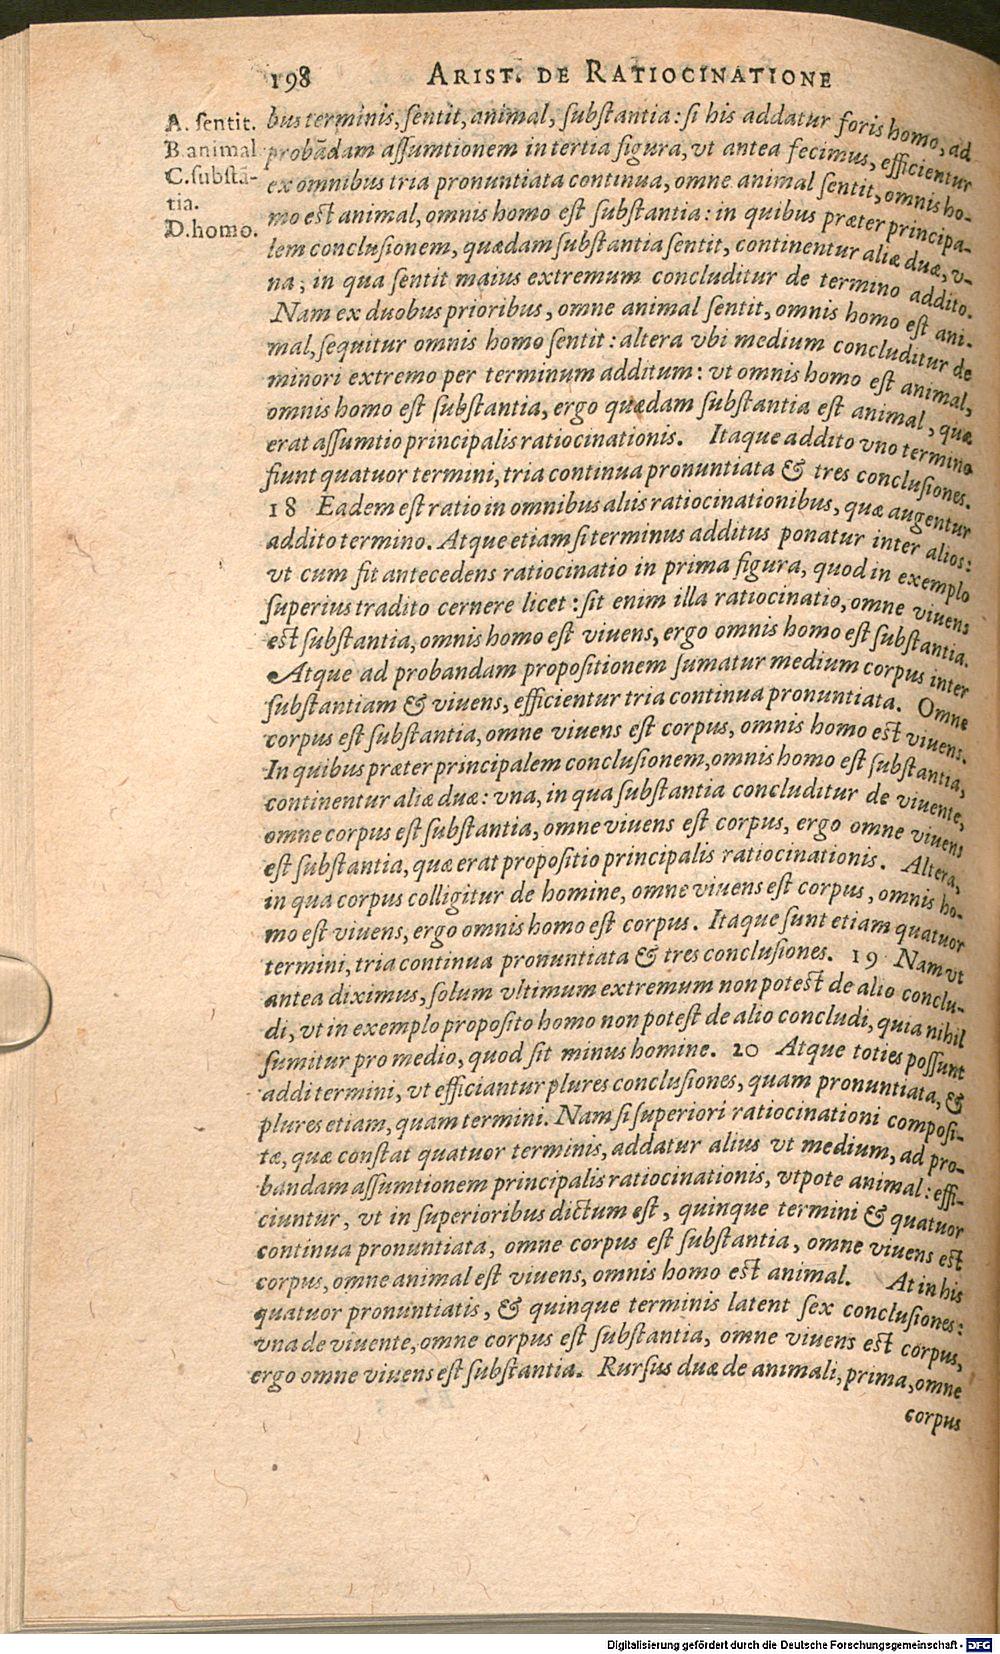 198 ARIST. DE RATIOCINATIONE
A. sentit.
B. animal
C. substā-
tia.
D. homo.
bus terminis, sentit, animal, substantia: si his addatur foris homo, ad
probādam assumtionem in tertia figura, vt antea fecimus, efficientur
ex omnibus tria pronuntiata continua, omne animal sentit, omnis ho-
mo est animal, omnis homo est substantia: in quibus præter principa-
lem conclusionem, quædam substantia sentit, continentur aliæ duæ, v-
na, in qua sentit maius extremum concluditur de termino addito.
Nam ex duobus prioribus, omne animal sentit, omnis homo est ani-
mal, sequitur omnis homo sentit: altera vbi medium concluditur de
minori extremo per terminum additum: vt omnis homo est animal,
omnis homo est substantia, ergo quædam substantia est animal, quæ
erat assumtio principalis ratiocinationis. Itaque addito vno termino
fiunt quatuor termini, tria continua pronuntiata & tres conclusiones.
18 Eadem est ratio in omnibus aliis ratiocinationibus, quæ augentur
addito termino. Atque etiam si terminus additus ponatur inter alios:
vt cum fit antecedens ratiocinatio in prima figura, quod in exemplo
superius tradito cernere licet: sit enim illa ratiocinatio, omne viuens
est substantia, omnis homo est viuens, ergo omnis homo est substantia.
Atque ad probandam propositionem sumatur medium corpus inter
substantiam & viuens, efficientur tria continua pronuntiata. Omne
corpus est substantia, omne viuens est corpus, omnis homo est viuens.
In quibus præter principalem conclusionem, omnis homo est substantia,
continentur aliæ duæ: vna, in qua substantia concluditur de viuente,
omne corpus est substantia, omne viuens est corpus, ergo omne viuens
est substantia, quæ erat propositio principalis ratiocinationis. Altera,
in qua corpus colligitur de homine, omne viuens est corpus, omnis ho-
mo est viuens, ergo omnis homo est corpus. Itaque sunt etiam quatuor
termini, tria continua pronuntiata & tres conclusiones. 19 Nam vt
antea diximus, solum vltimum extremum non potest de alio conclu-
di, vt in exemplo proposito homo non potest de alio concludi, quia nihil
sumitur pro medio, quod sit minus homine. 20 Atque toties possunt
addi termini, vt efficiantur plures conclusiones, quam pronuntiata, &
plures etiam, quam termini. Nam si superiori ratiocinationi composi-
tæ, quæ constat quatuor terminis, addatur alius vt medium, ad pro-
bandam assumtionem principalis ratiocinationis, vtpote animal: effi-
ciuntur, vt in superioribus dictum est, quinque termini & quatuor
continua pronuntiata, omne corpus est substantia, omne viuens est
corpus, omne animal est viuens, omnis homo est animal. At in his
quatuor pronuntiatis, & quinque terminis latent sex conclusiones:
vna de viuente, omne corpus est substantia, omne viuens est corpus,
ergo omne viuens est substantia. Rursus duæ de animali, prima, omne
corpus
Digitalisierung gefördert durch die Deutsche Forschungsgemeinschaft - DFG